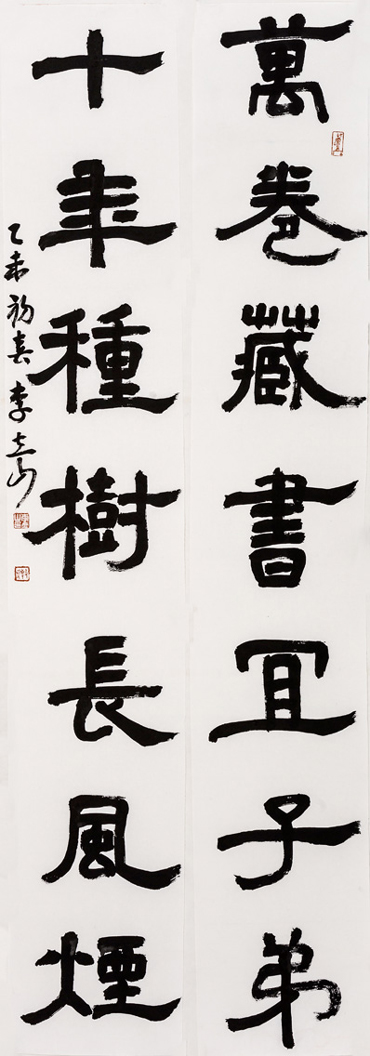 萬卷藏書宜子弟
十年種樹長風煙
乙未初春李立山